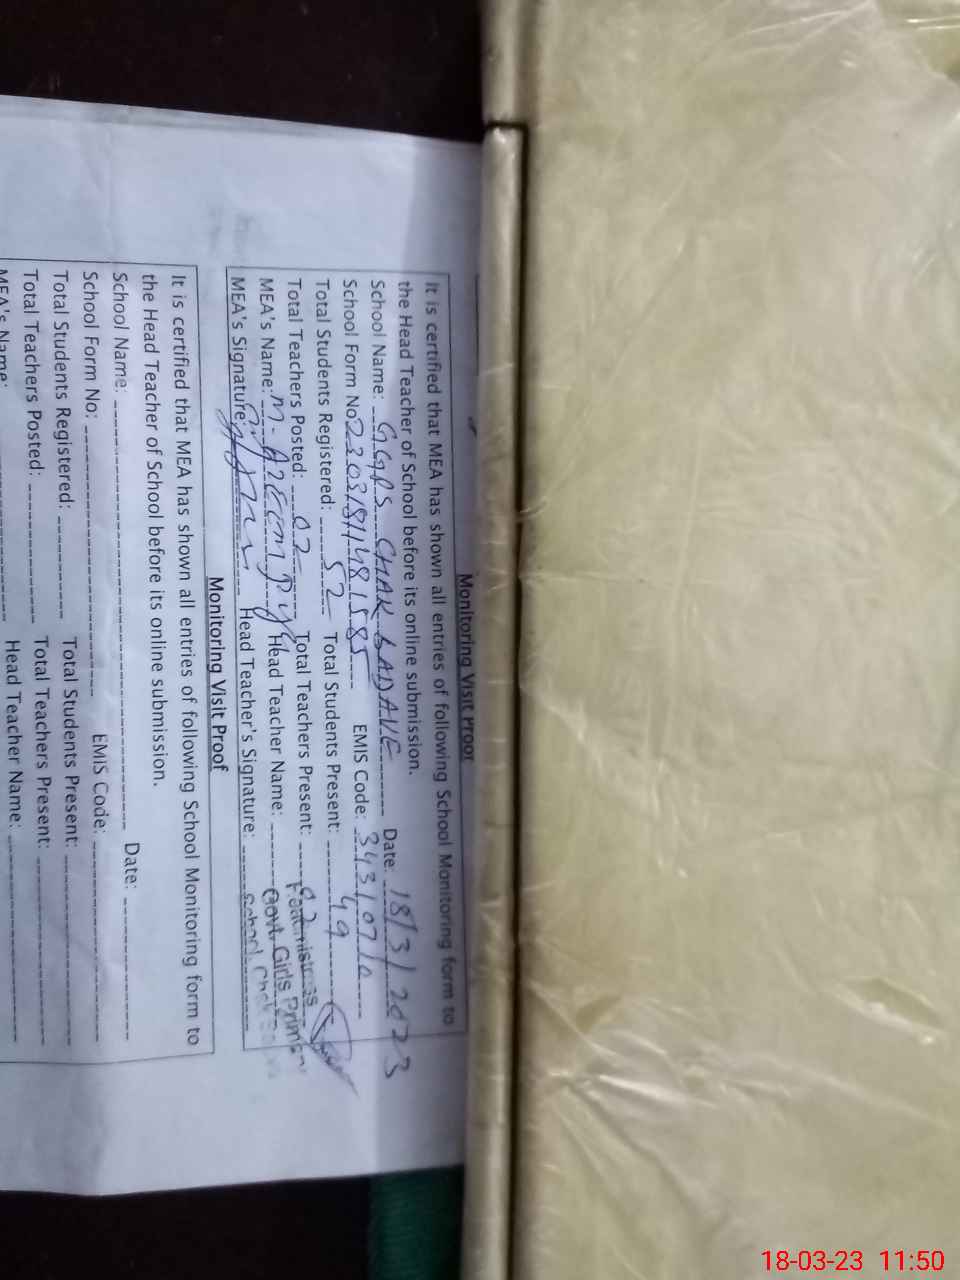 Monitoring Visit Proof
It is certified that MEA has shown all entries of following School Monitoring form to
the Head Teacher of School before its online submission.
School Name: GGPS CHAK SADAVE Date: 18/3/2023
School Form No 23031811481585 EMIS Code: 34310710
Total Students Registered: 52 Total Students Present: 49
Total Teachers Posted: 02 Total Teachers Present: 02
MEA's Name: M. AZEEM Head Teacher Name:
MEA's Signature: Head Teacher's Signature:
Headmistress
Govt. Girls Primary
School, Chak
Monitoring Visit Proof
It is certified that MEA has shown all entries of following School Monitoring form to
the Head Teacher of School before its online submission.
School Name: Date:
School Form No: EMIS Code:
Total Students Registered: Total Students Present:
Total Teachers Posted: Total Teachers Present:
MEA's Name: Head Teacher Name:
18-03-23 11:50